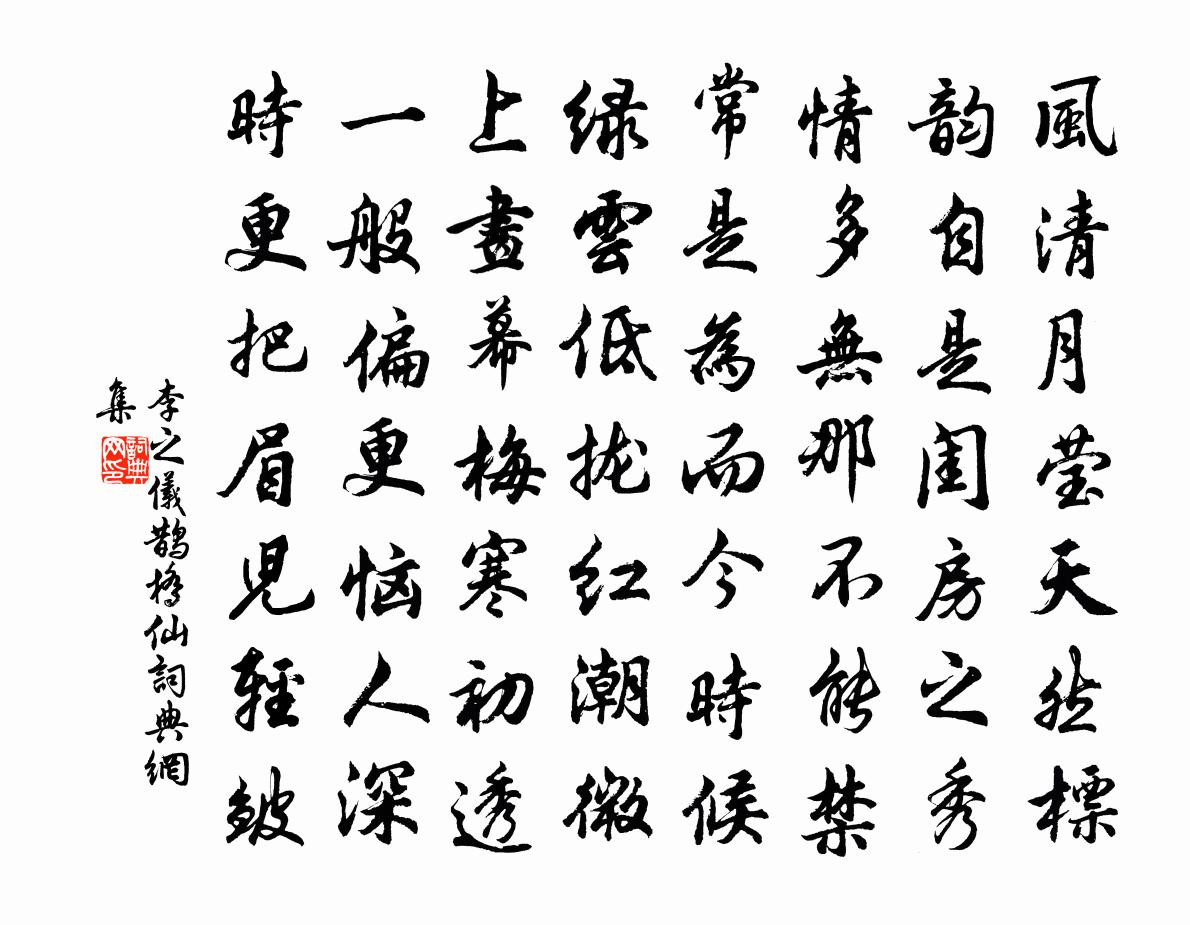 風清月莹天然標
韵自是閨房之秀
情多無那不能禁
常是為而今時候
绿雲低拢红潮微
上畫幕梅寒初透
一般偏更恼人深
時更把眉兒輕皴
李之儀鹊橋仙詞典網
集
詞典网印